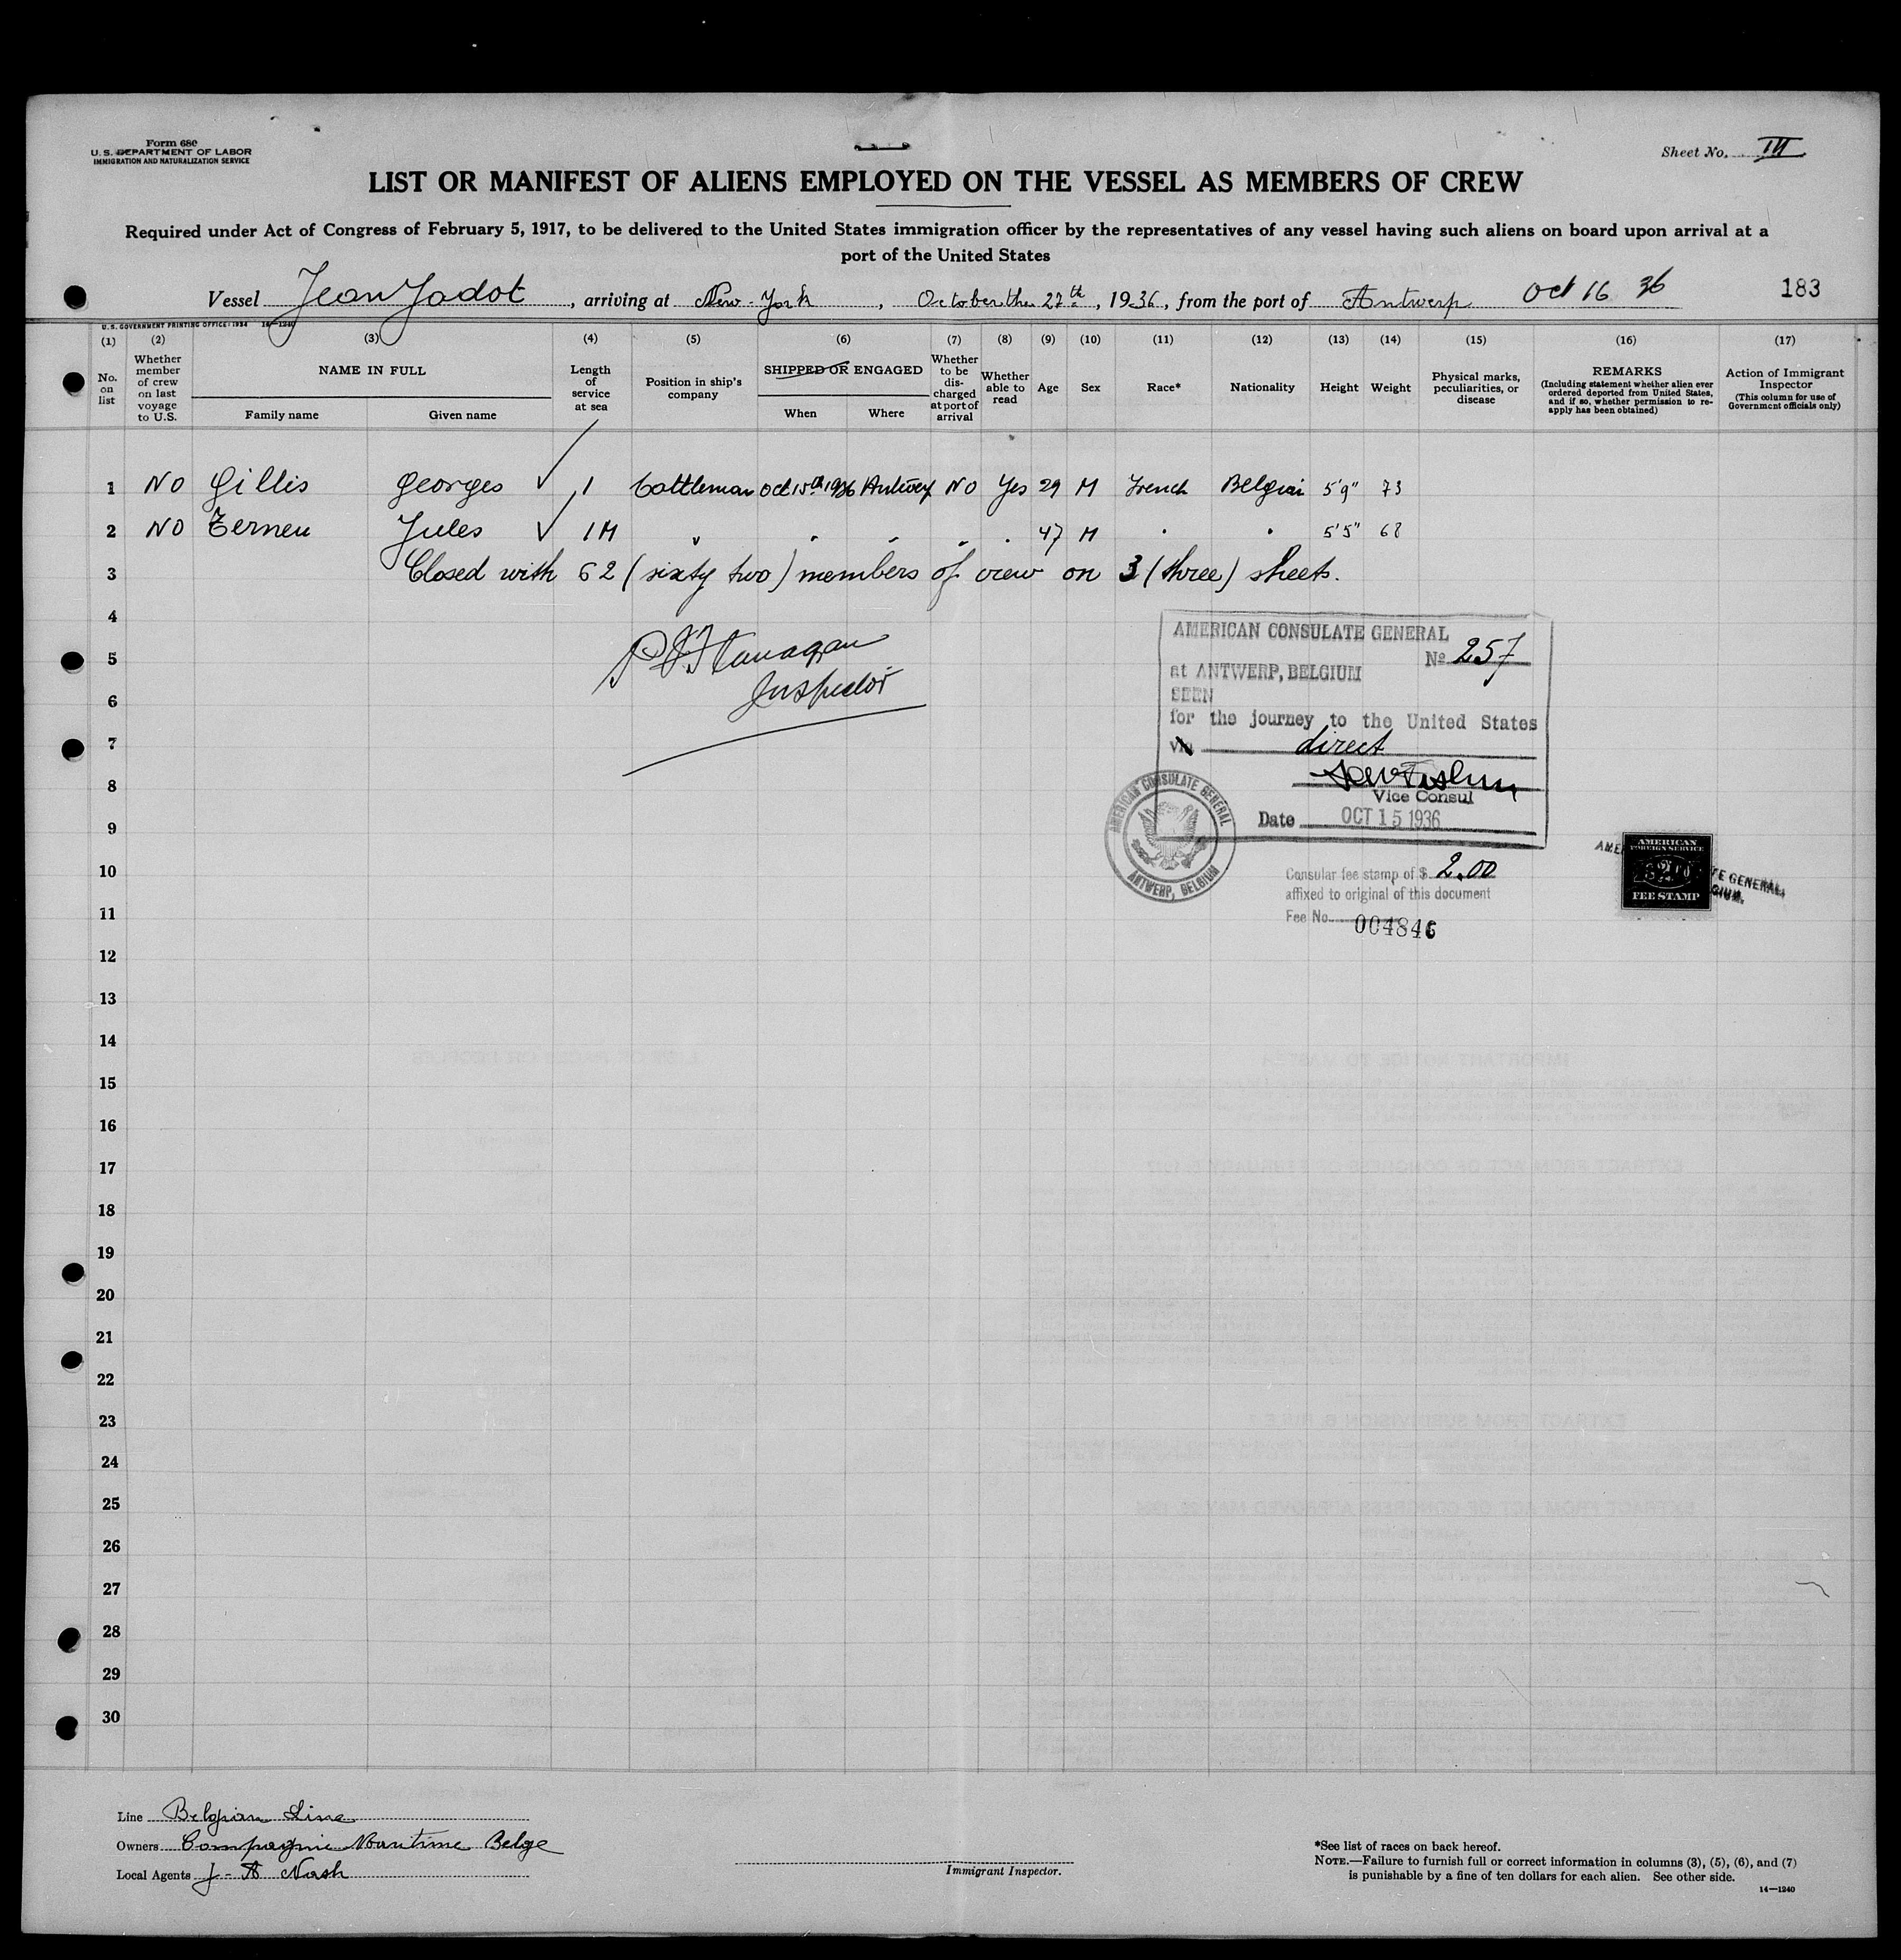 Form 680
U. S. DEPARTMENT OF LABOR
IMMIGRATION AND NATURALIZATION SERVICE
Sheet No. III
LIST OR MANIFEST OF ALIENS EMPLOYED ON THE VESSEL AS MEMBERS OF CREW
Required under Act of Congress of February 5, 1917, to be delivered to the United States immigration officer by the representatives of any vessel having such aliens on board upon arrival at a
port of the United States
Vessel Jean Jadot, arriving at New-York, October the 27th, 1936, from the port of Antwerp Oct 16 36 183
U. S. GOVERNMENT PRINTING OFFICE: 1934 14—1240
(1) (2) (3) (4) (5) (6) (7) (8) (9) (10) (11) (12) (13) (14) (15) (16) (17)
No. on list
Whether member of crew on last voyage to U.S.
NAME IN FULL
Family name
Given name
Length of service at sea
Position in ship's company
SHIPPED OR ENGAGED
When
Where
Whether to be discharged at port of arrival
Whether able to read
Age
Sex
Race*
Nationality
Height
Weight
Physical marks, peculiarities, or disease
REMARKS
(Including statement whether alien ever ordered deported from United States, and if so, whether permission to reapply has been obtained)
Action of Immigrant Inspector
(This column for use of Government officials only)
1 No Gillis Georges 1 Cattleman Oct 15th 1936 Antwerp No Yes 29 M French Belgian 5'9" 73
2 No Terneu Jules 1M " " " " " 47 M " " 5'5" 68
3 Closed with 62 (sixty two) members of crew on 3 (three) sheets.
4
5
6
7
8
9
10
11
12
13
14
15
16
17
18
19
20
21
22
23
24
25
26
27
28
29
30
P J Flanagan
Inspector
AMERICAN CONSULATE GENERAL
No 257
at ANTWERP, BELGIUM
SEEN
for the journey to the United States
via direct
Vice Consul
Date OCT 15 1936
AMERICAN CONSULATE GENERAL
ANTWERP, BELGIUM
Consular fee stamp of $ 2.00
affixed to original of this document
Fee No. 004846
AMERICAN
FOREIGN SERVICE
FEE STAMP
Line Belgian Line
Owners Compagnie Maritime Belge
Local Agents J-A Nash
Immigrant Inspector.
*See list of races on back hereof.
NOTE.—Failure to furnish full or correct information in columns (3), (5), (6), and (7)
is punishable by a fine of ten dollars for each alien. See other side.
14—1240